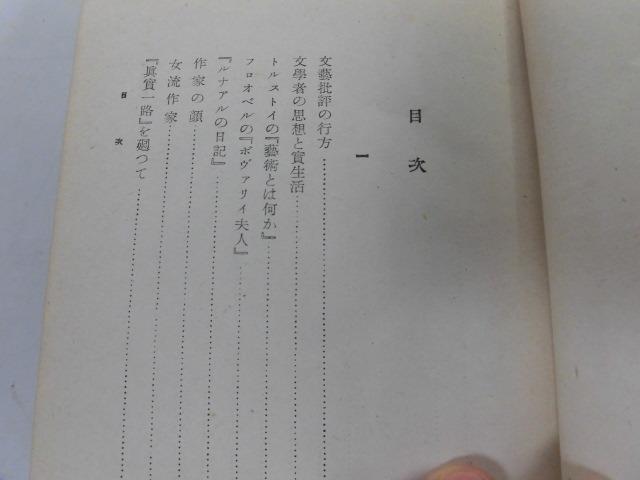 目次
一
文藝批評の行方
文學者の思想と實生活
トルストイの『藝術とは何か』
フロオベルの『ボヴァリイ夫人』
『ルナアルの日記』
作家の顔
女流作家
『眞實一路』を廻つて
目次